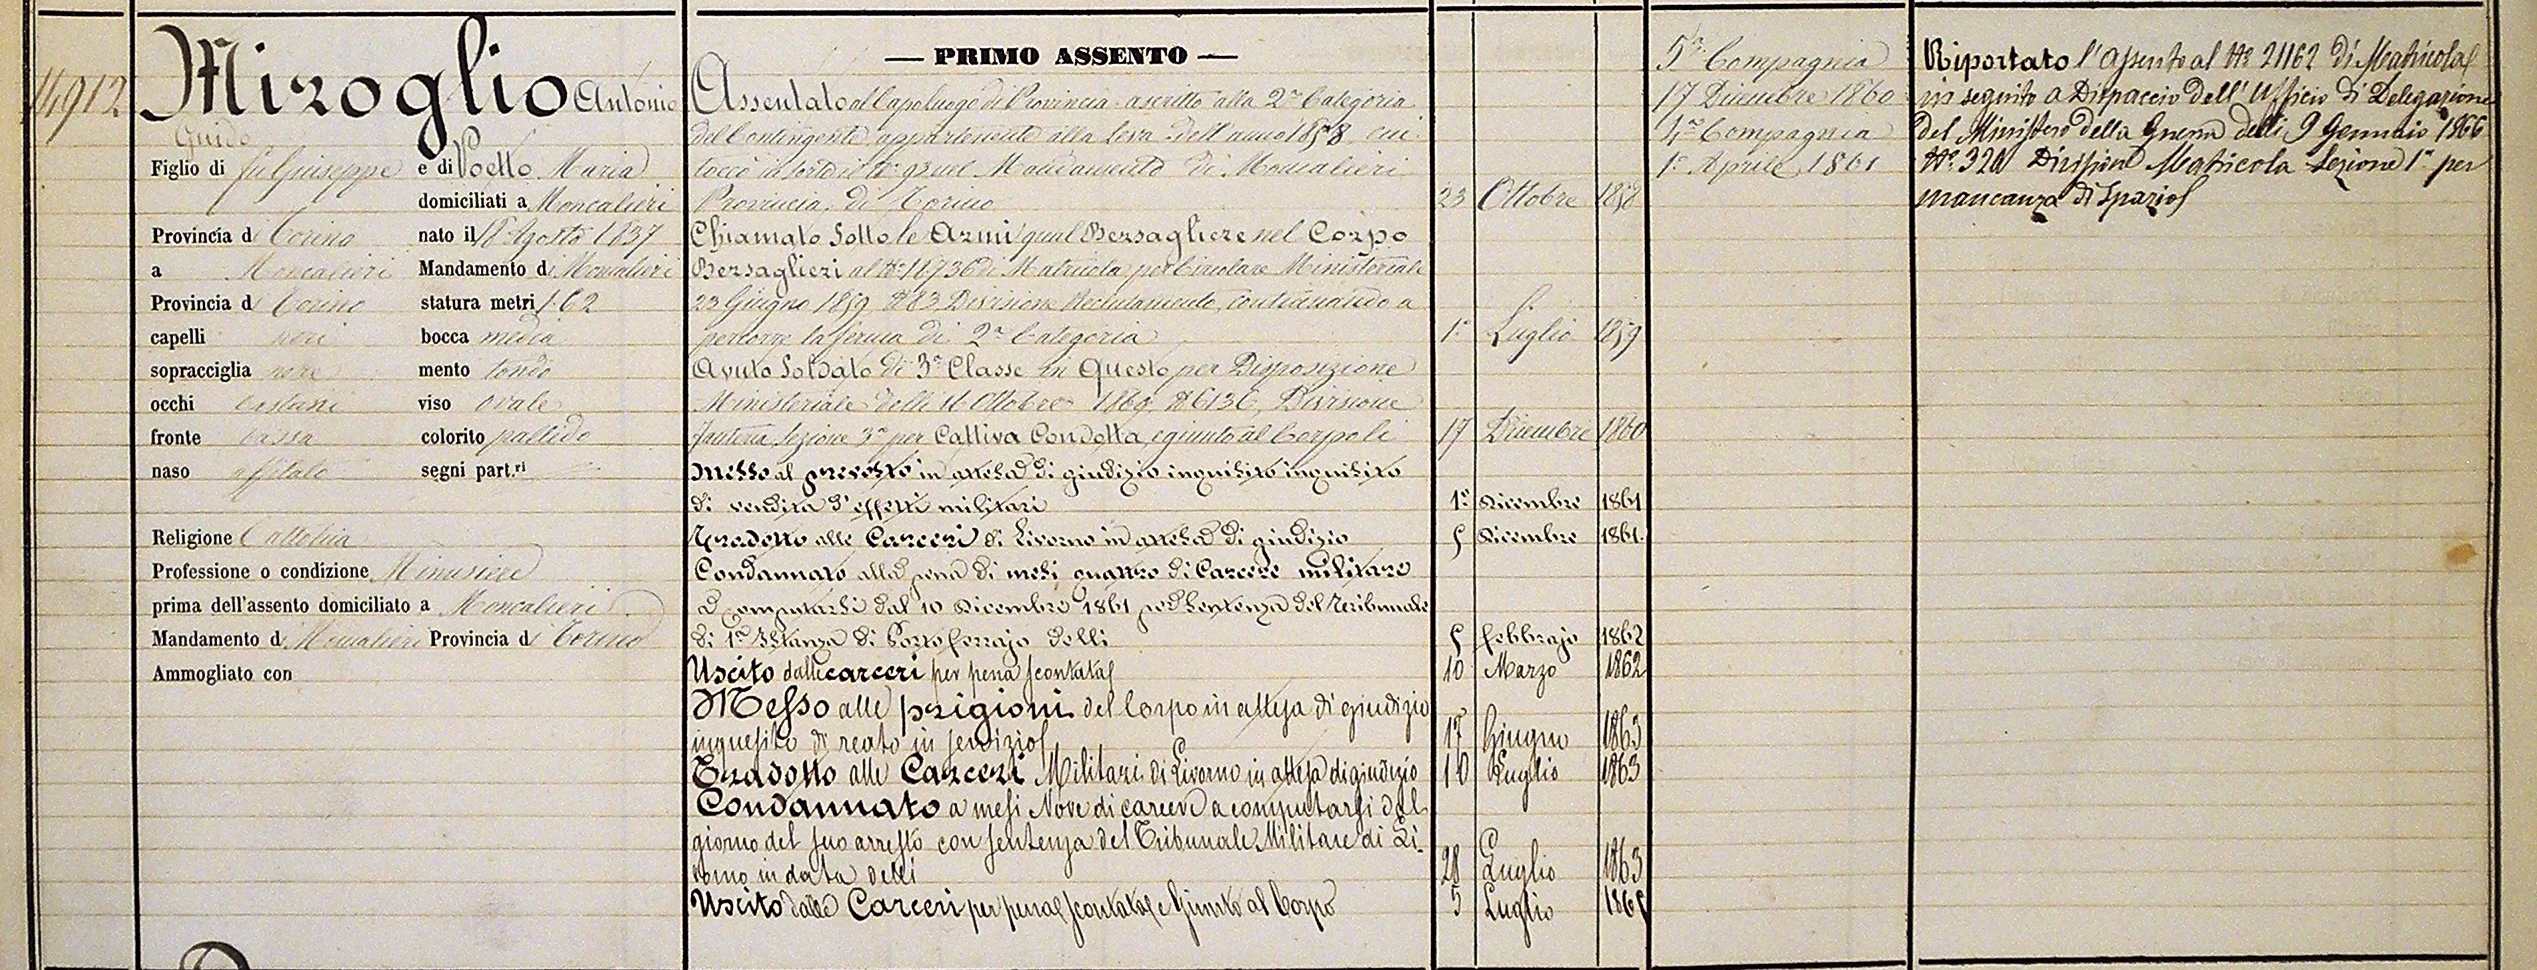 14912
Miroglio Antonio
Guido
Figlio di fu Giuseppe e di Voetto Maria
domiciliati a Moncalieri
Provincia di Torino nato il 18 Agosto 1837
a Moncalieri Mandamento di Moncalieri
Provincia di Torino statura metri 1.62
capelli neri bocca media
sopracciglia nere mento tondo
occhi castani viso ovale
fronte bassa colorito pallido
naso affilato segni part.ri
Religione Cattolica
Professione o condizione Minusiere
prima dell'assento domiciliato a Moncalieri
Mandamento di Moncalieri Provincia di Torino
Ammogliato con
— PRIMO ASSENTO —
Assentato al Capoluogo di Provincia ascritto alla 2a Categoria
del Contingente appartenente alla leva dell'anno 1858 cui
toccò in sorte il No nel Mandamento di Moncalieri
Provincia di Torino 23 Ottobre 1858
Chiamato sotto le Armi qual Bersagliere nel Corpo
Bersaglieri al No 18736 di Matricola per Circolare Ministeriale
23 Giugno 1859 No 83 Divisione Reclutamento, continuando a
percorre la ferma di 2a Categoria 1o Luglio 1859
Avuto Soldato di 3a Classe in Questo per Disposizione
Ministeriale delli 11 Ottobre 1860 No 6136, Divisione
Fanteria Sezione 3a per Cattiva Condotta, e giunto al Corpo li 17 Dicembre 1860
Messo al prevosto in attesa di giudizio inquisito inquisito
di vendita d'effetti militari 1o Dicembre 1861
Tradotto alle Carceri di Livorno in attesa di giudizio 5 Dicembre 1861
Condannato alla pena di mesi quattro di Carcere militare
a computarsi dal 10 Dicembre 1861 per Sentenza del Tribunale
di 1a Istanza di Porto ferrajo delli 5 febbrajo 1862
Uscito dalle carceri per pena scontata 10 Marzo 1862
Messo alle prigioni del Corpo in attesa di giudizio
inquesito di reato in servizio 17 Giugno 1863
Tradotto alle Carceri Militari di Livorno in attesa di giudizio 10 Luglio 1863
Condannato a mesi Nove di carcere a computarsi dal
giorno del suo arresto con sentenza del Tribunale Militare di Li-
vorno in data delli 28 Luglio 1863
Uscito dalle Carceri per pena scontata e Giunto al Corpo 5 Luglio
5a Compagnia
17 Dicembre 1860
4a Compagnia
1o Aprile 1861
Riportato l'assento al No 21162 di Matricola
in seguito a Dispaccio dell'Ufficio di Delegazione
del Ministero della Guerra delli 9 Gennaio 1866
No 320 Divisione Matricola Sezione 1a per
mancanza di spazio